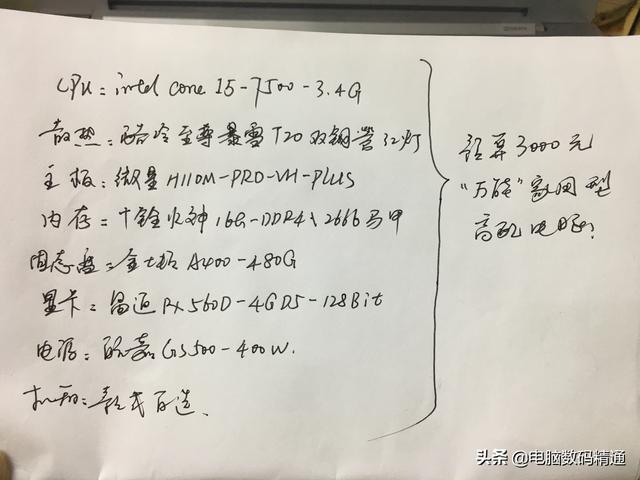 CPU：intel core i5-7500-3.4G
散热：酷冷至尊暴雪T20双铜管红灯
主板：微星H110M-PRO-VH-PLUS
内存：十铨火神16G-DDR4、2666马甲
固态盘：金士顿A400-480G
显卡：昌迅RX560D-4GD5-128Bit
电源：酷嘉GS500-400W.
机箱：款式自选、
预算3000元
"万能"家用型
高配电脑！
头条@电脑数码精通